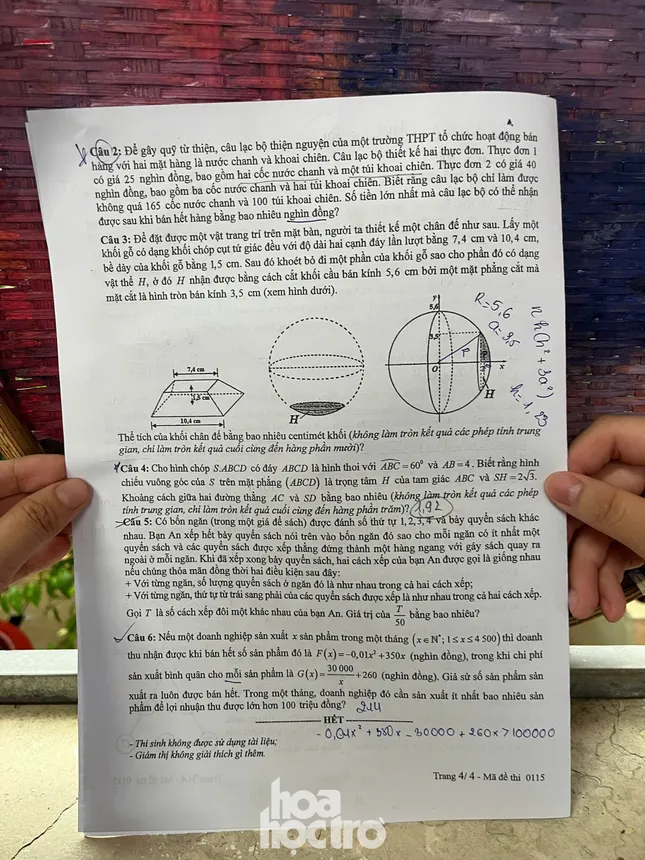 Câu 2: Để gây quỹ từ thiện, câu lạc bộ thiện nguyện của một trường THPT tổ chức hoạt động bán
hàng với hai mặt hàng là nước chanh và khoai chiên. Câu lạc bộ thiết kế hai thực đơn. Thực đơn 1
có giá 25 nghìn đồng, bao gồm hai cốc nước chanh và một túi khoai chiên. Thực đơn 2 có giá 40
nghìn đồng, bao gồm ba cốc nước chanh và hai túi khoai chiên. Biết rằng câu lạc bộ chỉ làm được
không quá 165 cốc nước chanh và 100 túi khoai chiên. Số tiền lớn nhất mà câu lạc bộ có thể nhận
được sau khi bán hết hàng bằng bao nhiêu nghìn đồng?
Câu 3: Để đặt được một vật trang trí trên mặt bàn, người ta thiết kế một chân đế như sau. Lấy một
khối gỗ có dạng khối chóp cụt tứ giác đều với độ dài hai cạnh đáy lần lượt bằng 7,4 cm và 10,4 cm,
bề dày của khối gỗ bằng 1,5 cm. Sau đó khoét bỏ đi một phần của khối gỗ sao cho phần đó có dạng
vật thể H, ở đó H nhận được bằng cách cắt khối cầu bán kính 5,6 cm bởi một mặt phẳng cắt mà
mặt cắt là hình tròn bán kính 3,5 cm (xem hình dưới).
R=5,6
a=3,5
h=1,23
y
5,6
3,5
R
O
x
H
7,4 cm
1,5 cm
10,4 cm
H
Thể tích của khối chân đế bằng bao nhiêu centimét khối (không làm tròn kết quả các phép tính trung
gian, chỉ làm tròn kết quả cuối cùng đến hàng phần mười)?
Câu 4: Cho hình chóp S.ABCD có đáy ABCD là hình thoi với ABC = 60⁰ và AB = 4. Biết rằng hình
chiếu vuông góc của S trên mặt phẳng (ABCD) là trọng tâm H của tam giác ABC và SH = 2√3.
Khoảng cách giữa hai đường thẳng AC và SD bằng bao nhiêu (không làm tròn kết quả các phép
tính trung gian, chỉ làm tròn kết quả cuối cùng đến hàng phần trăm)? 1,92
Câu 5: Có bốn ngăn (trong một giá để sách) được đánh số thứ tự 1, 2, 3, 4 và bảy quyển sách khác
nhau. Bạn An xếp hết bảy quyển sách nói trên vào bốn ngăn đó sao cho mỗi ngăn có ít nhất một
quyển sách và các quyển sách được xếp thẳng đứng thành một hàng ngang với gáy sách quay ra
ngoài ở mỗi ngăn. Khi đã xếp xong bảy quyển sách, hai cách xếp của bạn An được gọi là giống nhau
nếu chúng thỏa mãn đồng thời hai điều kiện sau đây:
+ Với từng ngăn, số lượng quyển sách ở ngăn đó là như nhau trong cả hai cách xếp;
+ Với từng ngăn, thứ tự từ trái sang phải của các quyển sách được xếp là như nhau trong cả hai cách xếp.
Gọi T là số cách xếp đôi một khác nhau của bạn An. Giá trị của T/50 bằng bao nhiêu?
Câu 6: Nếu một doanh nghiệp sản xuất x sản phẩm trong một tháng (x∈N*; 1≤x≤4 500) thì doanh
thu nhận được khi bán hết số sản phẩm đó là F(x)=−0,01x²+350x (nghìn đồng), trong khi chi phí
sản xuất bình quân cho mỗi sản phẩm là G(x)=30 000/x+260 (nghìn đồng). Giả sử số sản phẩm sản
xuất ra luôn được bán hết. Trong một tháng, doanh nghiệp đó cần sản xuất ít nhất bao nhiêu sản
phẩm để lợi nhuận thu được lớn hơn 100 triệu đồng?
HẾT
- 0,01x² + 350x - 30000 + 260x > 100000
- Thí sinh không được sử dụng tài liệu;
- Giám thị không giải thích gì thêm.
Trang 4/ 4 - Mã đề thi 0115
hoa
học trò